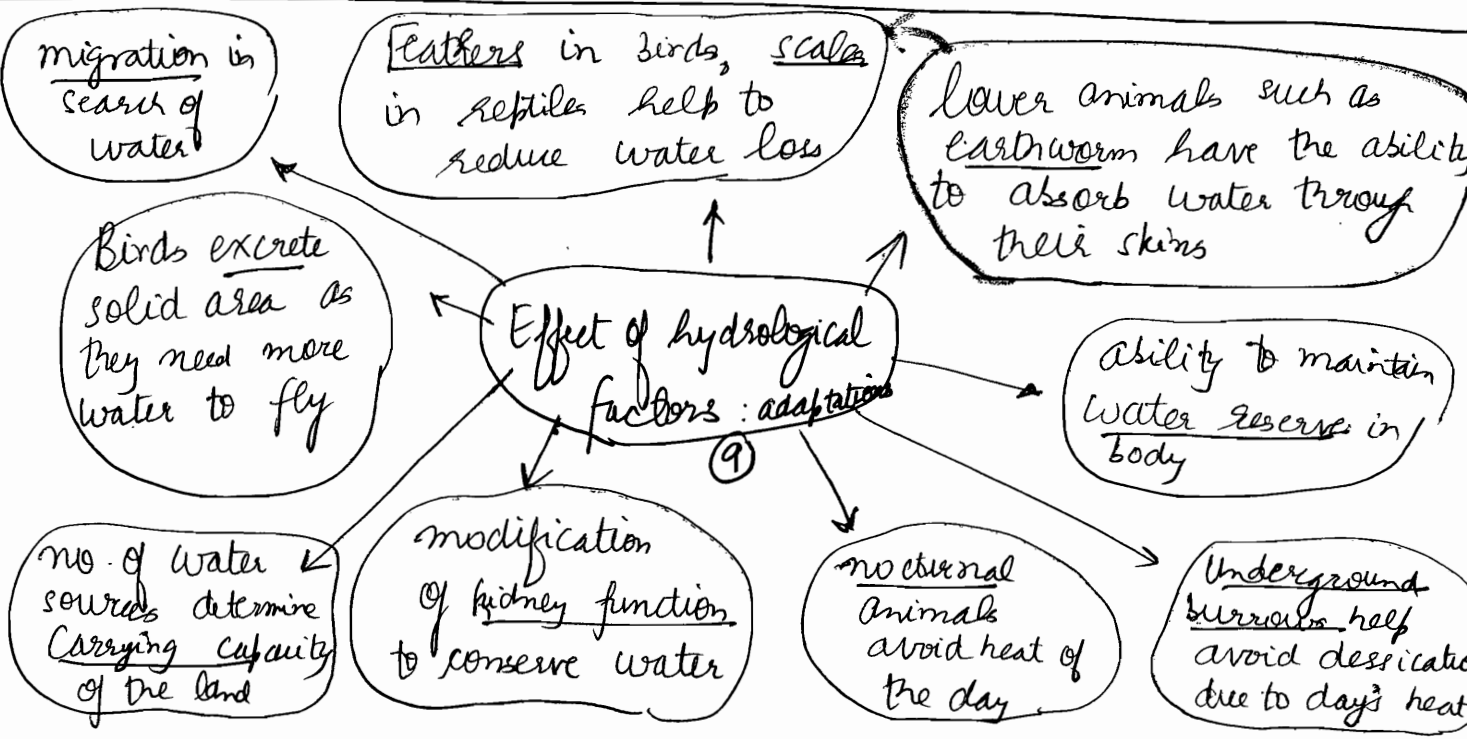 migration in
search of
water
Feathers in Birds, scales
in reptiles help to
reduce water loss
lower animals such as
earthworm have the ability
to absorb water through
their skins
Birds excrete
solid area as
they need more
water to fly
Effect of hydrological
factors : adaptations
9
ability to maintain
water reserve in
body
no. of water
sources determine
Carrying capacity
of the land
modification
of kidney function
to conserve water
nocturnal
animals
avoid heat of
the day
Underground
burrows help
avoid dessicatio
due to day's heat